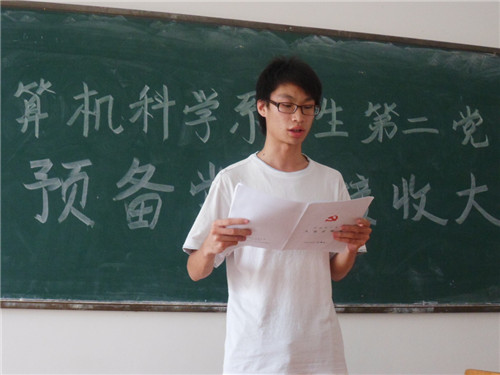 算机科学系 生第二党
预备 接收大